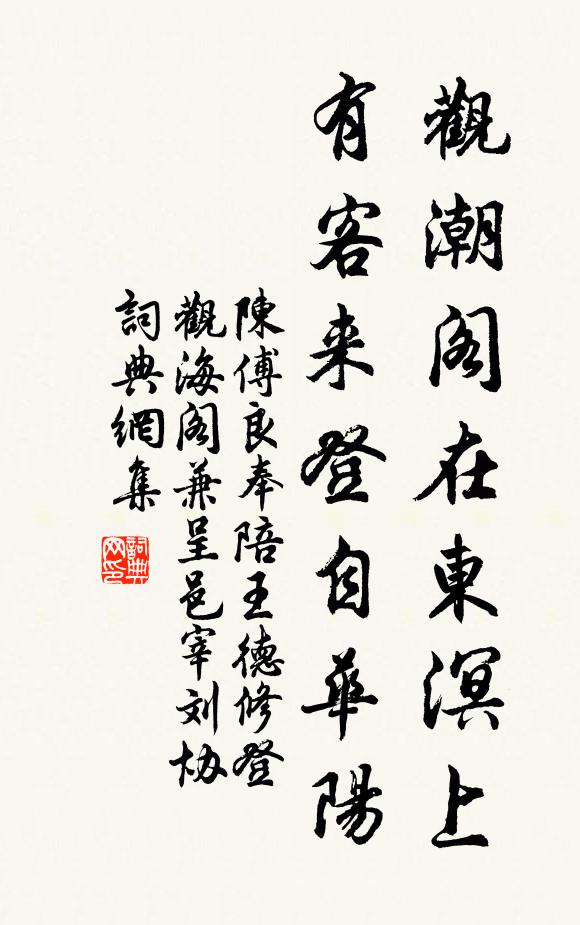 觀潮阁在東溟上
有客来登自華陽
陳傅良奉陪王德修登
觀海阁兼呈邑宰刘協
詞典網集
詞典网印